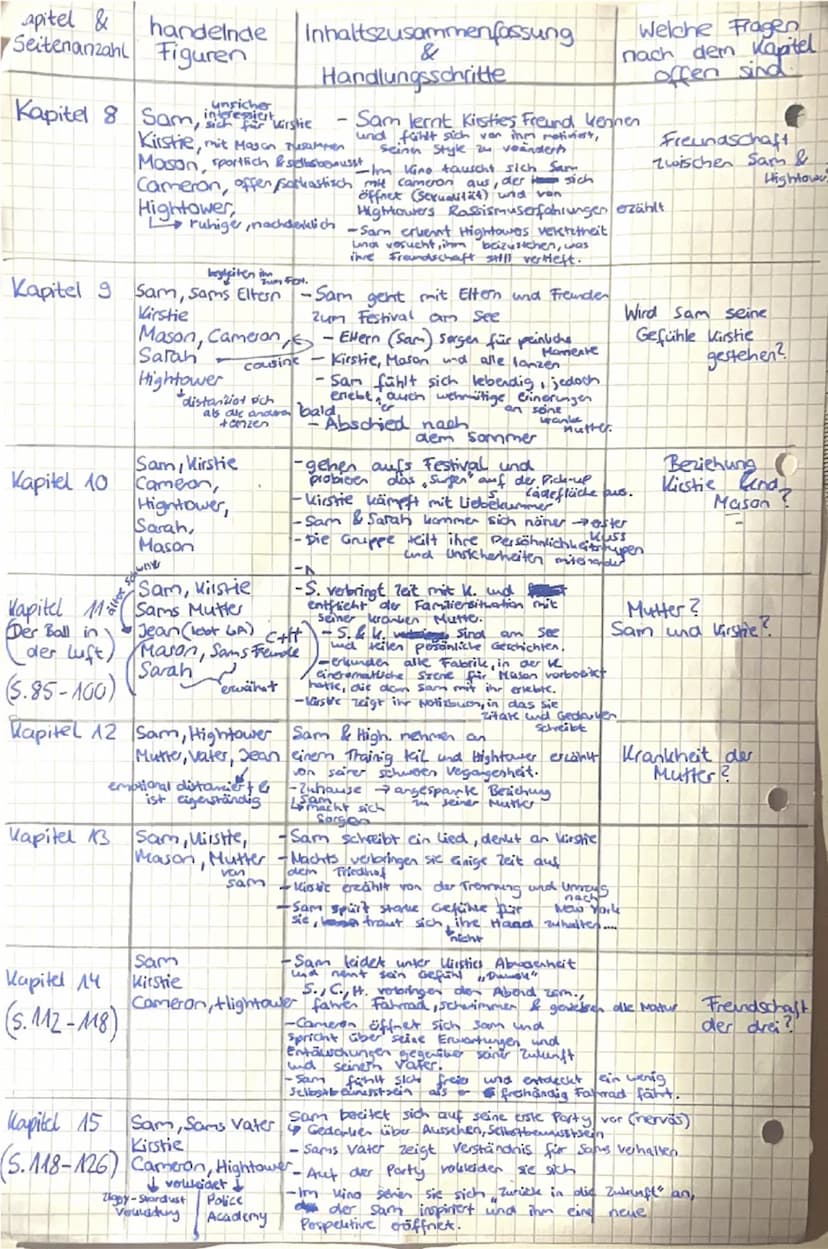 apitel &
Seitenanzahl
handelnde
Figuren
Inhaltszusammenfassung
&
Handlungsschritte
Welche Fragen
nach dem Kapitel
offen sind
Kapitel 8
unsicher
Sam, interessiert
sich für Kirstie
Kirstie, mit Mason zusammen
Mason, sportlich & selbstbewusst
Cameron, offen/sarkastisch
Hightower,
↳ ruhiger, nachdenklich
- Sam lernt Kirsties Freund kennen
und fühlt sich von ihm motiviert,
seinen Style zu verändern
- Im Kino tauscht sich Sam
mit Cameron aus, der sich
öffnet (Sexualität) und von
Hightowers Rassismuserfahrungen erzählt
- Sam erkennt Hightowers Verletztheit
und versucht, ihm beizustehen, was
ihre Freundschaft still vertieft.
Freundschaft
zwischen Sam &
Hightower
Kapitel 9
begleiten ihn
zum Fest.
Sam, Sams Eltern
Kirstie
Mason, Cameron,
Sarah
cousine
Hightower
distanziert sich
als die anderen
tanzen
- Sam geht mit Eltern und Freunden
zum Festival am See
- Eltern (Sam) sorgen für peinliche
Momente
- Kirstie, Mason und alle tanzen
- Sam fühlt sich lebendig, jedoch
erlebt er auch wehmütige Erinnerungen
an seine
kranke
Mutter.
- Abschied nach
bald
dem Sommer
Wird Sam seine
Gefühle Kirstie
gestehen?
Kapitel 10
Sam, Kirstie
Cameron,
Hightower,
Sarah,
Mason
- gehen aufs Festival und
probieren das "Surfen" auf der Pick-up
Ladefläche aus.
- Kirstie kämpft mit Liebeskummer
- Sam & Sarah kommen sich näher → erster
Kuss
- Die Gruppe teilt ihre Persönlichkeitstypen
und Unsicherheiten miteinander
Beziehung
Kirstie und
Mason?
Kapitel 11
(Der Ball in
der Luft)
(S.85-100)
Sam, Kirstie
Sams Mutter
ältere Schwester
Jean (lebt LA)
C+H
Mason, Sams Freunde
Sarah
erwähnt
- S. verbringt Zeit mit K. und
entflieht der Familiensituation mit
seiner kranken Mutter.
- S. & K. sind am See
und teilen persönliche Geschichten.
- erkunden alte Fabrik, in der K
eine romantische Szene für Mason vorbereitet
hatte, die dann Sam mit ihr erlebte.
- Kirstie zeigt ihr Notizbuch, in das sie
Zitate und Gedanken
schreibt
Mutter?
Sam und Kirstie?
Kapitel 12
Sam, Hightower
Mutter, Vater, Jean
emotional distanziert &
ist eigenständig
Sam & High. nehmen an
einem Training teil und Hightower erzählt
von seiner schweren Vergangenheit.
- Zuhause → angespannte Beziehung
zu seiner Mutter
↳ Sam
macht sich
Sorgen
Krankheit der
Mutter?
Kapitel 13
Sam, Kirstie,
Mason, Mutter
von
Sam
- Sam schreibt ein Lied, denkt an Kirstie
- Nachts verbringen sie einige Zeit auf
dem Friedhof
- Kirstie erzählt von der Trennung und Umzug
nach
New York
- Sam spürt starke Gefühle für
sie, traut sich ihre Hand zuhalten....
nicht
Kapitel 14
(S.112-118)
Sam
Kirstie
Cameron, Hightower
- Sam leidet unter Kirsties Abwesenheit
und nennt sein Gefühl
S., C., H. verbringen den Abend zsm.,
fahren Fahrrad, schwimmen & genießen die Natur
- Cameron öffnet sich Sam und
spricht über seine Erwartungen und
Entäuschungen gegenüber seiner Zukunft
und seinem Vater.
- Sam fühlt sich freier und entdeckt ein wenig
Selbstbewusstsein als er freihändig Fahrrad fährt.
Freundschaft
der drei?
Kapitel 15
(S.118-126)
Sam, Sams Vater
Kirstie
Cameron, Hightower
↓ verkleidet ↓
Ziggy-Stardust
Verkleidung
Police
Academy
Sam bereitet sich auf seine erste Party vor (nervös)
↳ Gedanken über Aussehen, Selbstbewusstsein
- Sams Vater zeigt Verständnis für Sams Verhalten
- Auf der Party verkleiden sie sich
- Im Kino sehen sie sich "Zurück in die Zukunft" an,
der Sam inspiriert und ihm eine neue
Perspektive eröffnet.